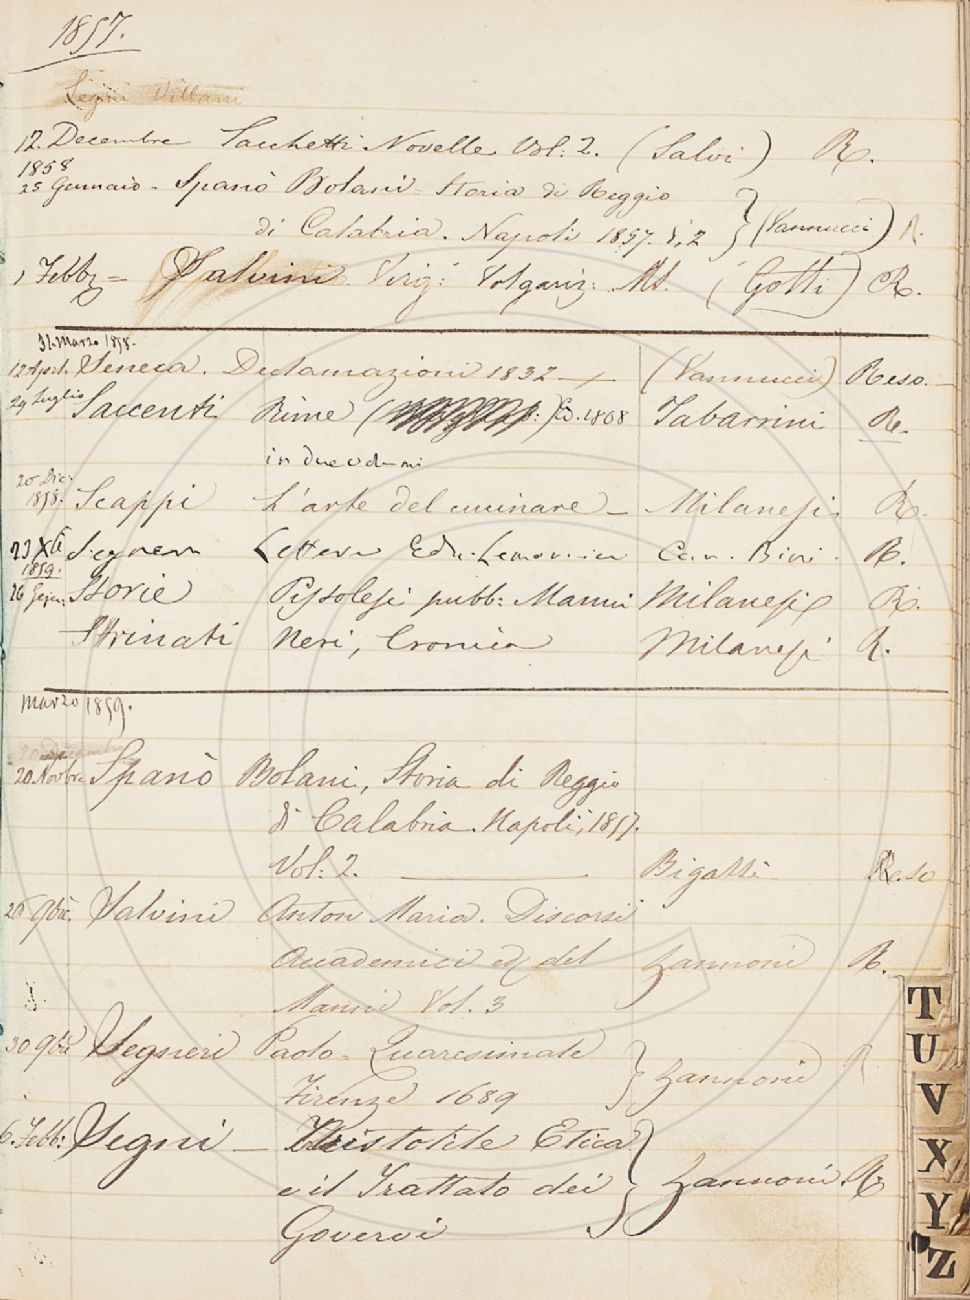 1857.
Segni Villani
12. Decembre Sacchetti Novelle Vol: 2. (Salvi) R.
1858
25 Gennaio - Spanò Bolani - Storia di Reggio
di Calabria. Napoli 1857. V. 2 (Vannucci) R.
1 Febb = Salvini Virg: Volgariz: Ms. (Gotti) R.
31. Marzo 1858.
12 April. Seneca. Declamazioni 1832 (Vannucci) Reso.
29 Luglio Saccenti Rime ( Ed. 1808 Tabarrini R.
in due volumi
20 Dic.
1858. Scappi L'arte del cucinare - Milanesi R.
23 Xbre Segneri Lettere Ediz. Lemonnier Can. Bini. R.
1859.
26 Genn. Storie Pistolesi pubb: Manni Milanesi R.
Strinati Neri, Cronica Milanesi R.
Marzo 1859.
20 Decembre
20. Novbre Spanò Bolani, Storia di Reggio
di Calabria. Napoli, 1857.
Vol: 2. Bigatti Reso
20 9bre. Salvini Anton Maria. Discorsi
Accademici ed. del Zannoni R.
Manni Vol. 3
30 9bre Segneri Paolo - Quaresimale
Firenze 1689 Zannoni R
6. Febb: Segni - Aristotile Etica
e il Trattato dei Zannoni. R.
Governi
T
U
V
X
Y
Z